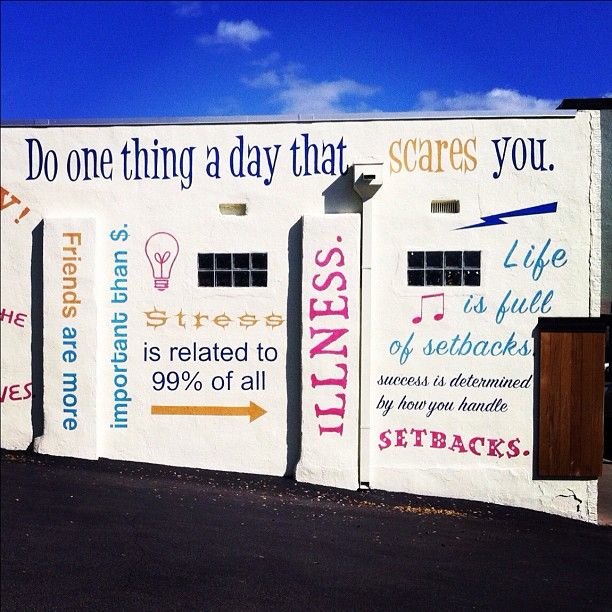 Do one thing a day that scares you.
Y!
HE
VES
Friends are more
important than $.
Stress
is related to
99% of all
ILLNESS.
Life
is full
of setbacks.
success is determined
by how you handle
SETBACKS.